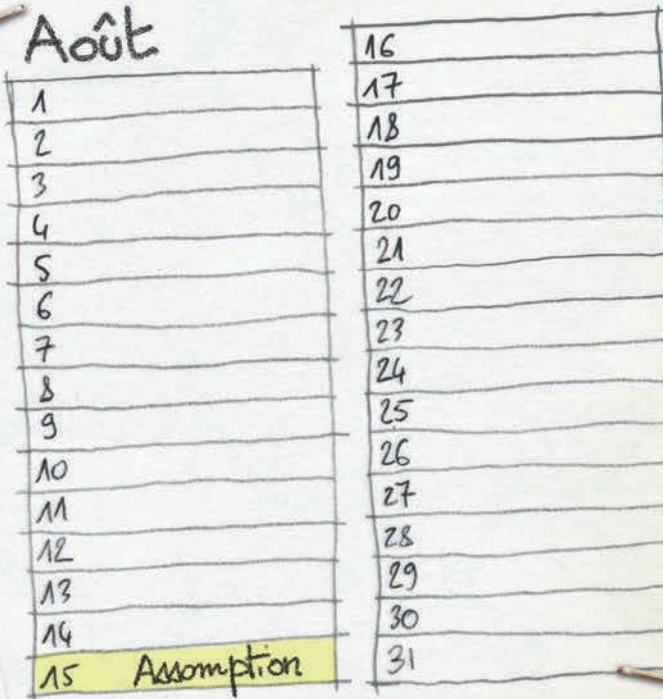 Août
1
2
3
4
5
6
7
8
9
10
11
12
13
14
15 Assomption
16
17
18
19
20
21
22
23
24
25
26
27
28
29
30
31